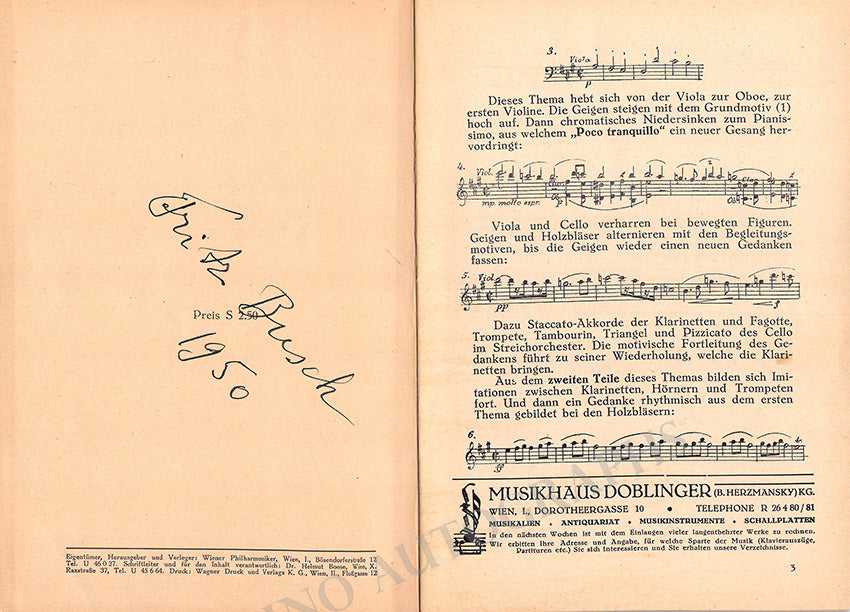 Fritz
Busch
Preis S 2.50
1950
Eigentümer, Herausgeber und Verleger: Wiener Philharmoniker, Wien, I., Bösendorferstraße 12
Tel. U 46 0 27. Schriftleiter und für den Inhalt verantwortlich: Dr. Helmut Boese, Wien, X.
Raxstraße 37, Tel. U 45 6 64. Druck: Wagner Druck und Verlags K. G., Wien, II., Floßgasse 12
3.
Viola
p
Dieses Thema hebt sich von der Viola zur Oboe, zur
ersten Violine. Die Geigen steigen mit dem Grundmotiv (1)
hoch auf. Dann chromatisches Niedersinken zum Pianis-
simo, aus welchem „Poco tranquillo“ ein neuer Gesang her-
vordringt:
4.
Viol.
mp. molto espr.
p
Viola und Cello verharren bei bewegten Figuren.
Geigen und Holzbläser alternieren mit den Begleitungs-
motiven, bis die Geigen wieder einen neuen Gedanken
fassen:
5. Viol
pp
Dazu Staccato-Akkorde der Klarinetten und Fagotte,
Trompete, Tambourin, Triangel und Pizzicato des Cello
im Streichorchester. Die motivische Fortleitung des Ge-
dankens führt zu seiner Wiederholung, welche die Klari-
netten bringen.
Aus dem zweiten Teile dieses Themas bilden sich Imi-
tationen zwischen Klarinetten, Hörnern und Trompeten
fort. Und dann ein Gedanke rhythmisch aus dem ersten
Thema gebildet bei den Holzbläsern:
6.
MUSIKHAUS DOBLINGER (B. HERZMANSKY) KG.
WIEN, I., DOROTHEERGASSE 10 • TELEPHONE R 26 4 80 / 81
MUSIKALIEN • ANTIQUARIAT • MUSIKINSTRUMENTE • SCHALLPLATTEN
In den nächsten Wochen ist mit dem Einlangen vieler langentbehrter Werke zu rechnen.
Wir erbitten Ihre Adresse und Angabe, für welche Sparte der Musik (Klavierauszüge,
Partituren etc.) Sie sich interessieren und Sie erhalten unsere Verzeichnisse.
3